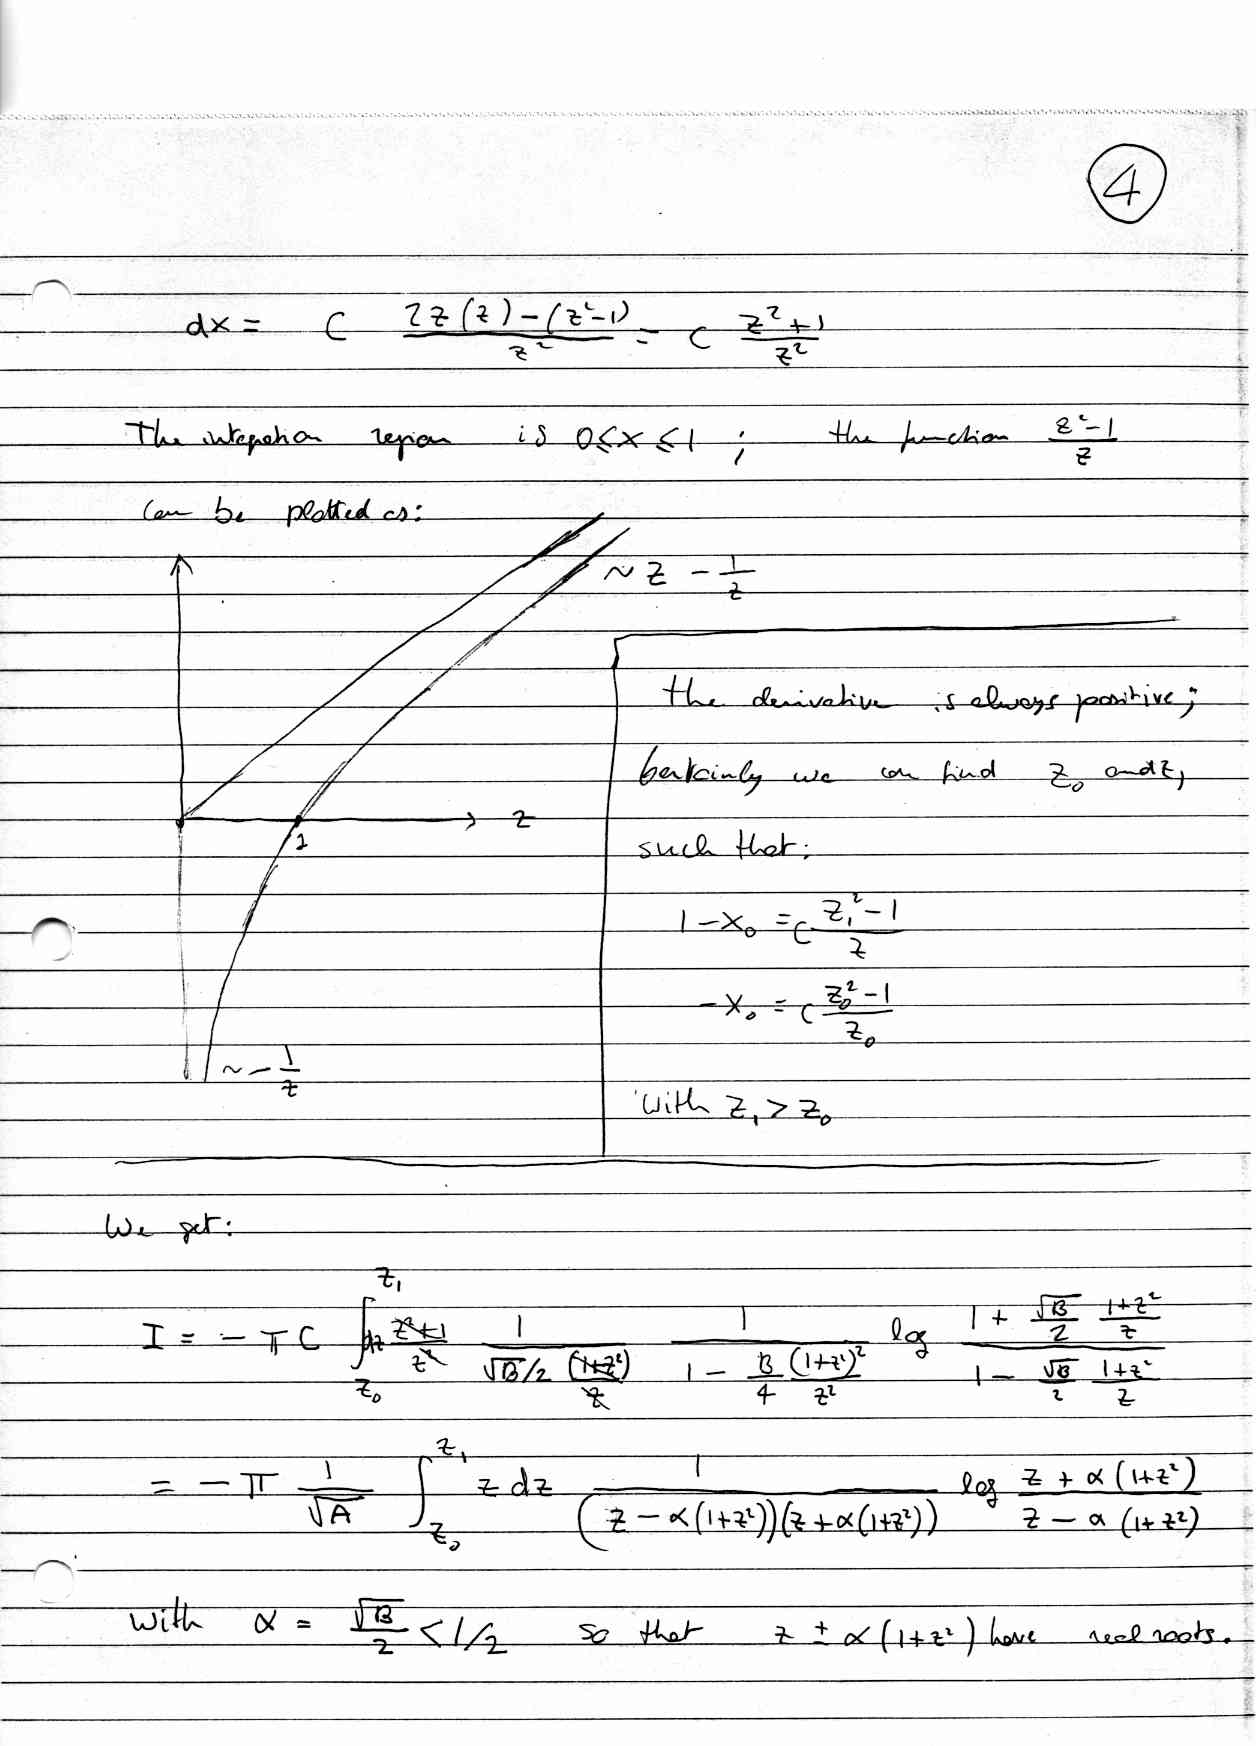 4
dx = C (2z(z) - (z²-1))/z² = C (z²+1)/z²
The integration region is 0≤x≤1 ; the function (z²-1)/z
can be plotted as:
~ z - 1/z
the derivative is always positive;
certainly we can find z₀ and z₁
z
1
such that:
1-x₀ = C (z₁²-1)/z
-x₀ = C (z₀²-1)/z₀
~ - 1/z
with z₁ > z₀
We get:
I = -πC ∫_{z₀}^{z₁} dz (z²+1)/z² 1/(√B/2 (1+z²)/z) 1/(1 - B/4 (1+z²)²/z²) log (1 + √B/2 (1+z²)/z)/(1 - √B/2 (1+z²)/z)
= -π 1/√A ∫_{z₀}^{z₁} z dz 1/((z - α(1+z²))(z+α(1+z²))) log (z + α(1+z²))/(z - α(1+z²))
with α = √B/2 < 1/2 so that z ± α(1+z²) have real roots.